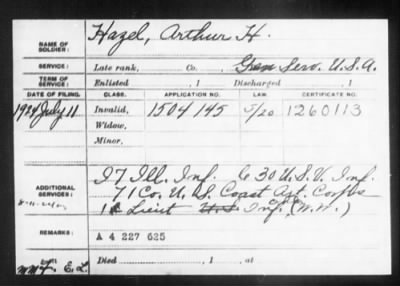 NAME OF SOLDIER: Hazel, Arthur H.
SERVICE: Late rank, Co. , Gen Serv. U.S.A.
TERM OF SERVICE: Enlisted , 1 Discharged , 1
DATE OF FILING. CLASS. APPLICATION NO. LAW. CERTIFICATE NO.
1924 July 11 Invalid, 1504 145 5/20 1260113
Widow,
Minor,
ADDITIONAL SERVICES:
I 7 Ill. Inf. C 30 U.S.V. Inf.
71 Co. U.S. Coast Art. Corps
1st Lieut U.S. Inf. (W.W.)
REMARKS: A 4 227 625
Died , 1 , at
E. L.